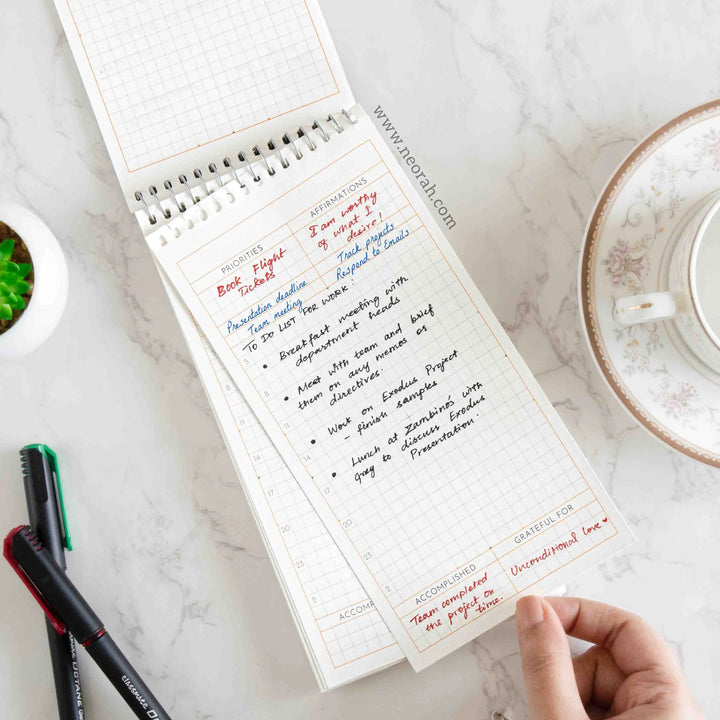 www.neorah.com
PRIORITIES
Book Flight
Tickets
AFFIRMATIONS
I am worthy
of what I
desire!
Presentation deadline
Team meeting
Track projects
Respond to Emails
TO DO LIST FOR WORK:
• Breakfast meeting with
department heads
• Meet with team and brief
them on any memos or
directives.
• Work on Exodus Project
- finish samples
• Lunch at Zambino's with
Grey to discuss Exodus
Presentation.
5
8
11
14
17
20
23
2
ACCOMPLISHED
Team completed
the project on
time.
GRATEFUL FOR
Unconditional love ♥
11
14
17
20
23
2
ACCOMPL
classmate OCTANE